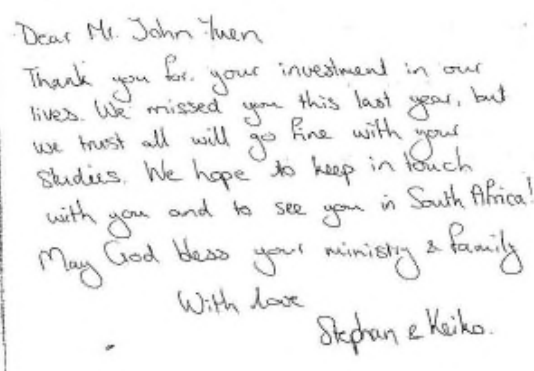 Dear Mr. John Yuen
Thank you for. your investment in our
lives. We missed you this last year, but
we trust all will go fine with your
studies. We hope to keep in touch
with you and to see you in South Africa!
May God bless your ministry & family
With love
Stephan & Keiko.